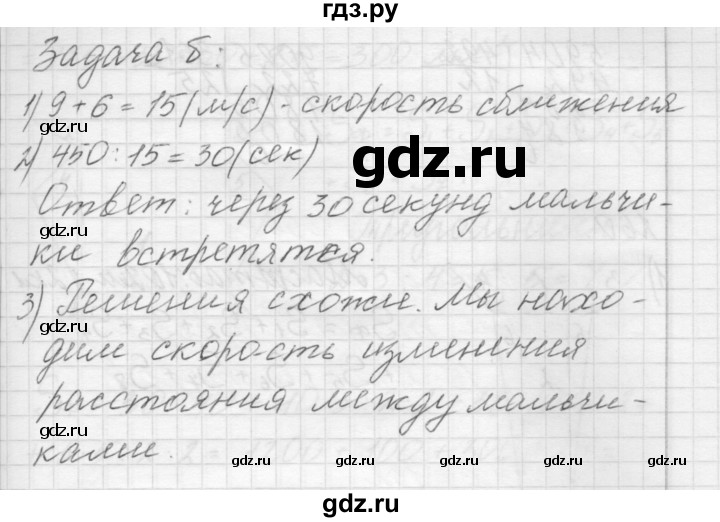 гдз.ру
Задача б:
1) 9 + 6 = 15 (м/с) - скорость сближения
2) 450 : 15 = 30 (сек)
gdz.ru
gdz.ru
gdz.ru
Ответ: через 30 секунд мальчи-
ки встретятся.
3) Решения схожи. Мы нахо-
дим скорость изменения
расстояния между мальчи-
gdz.ru
ками.
gdz.ru
gdz.ru
gdz.ru
gdz.ru
gdz.ru